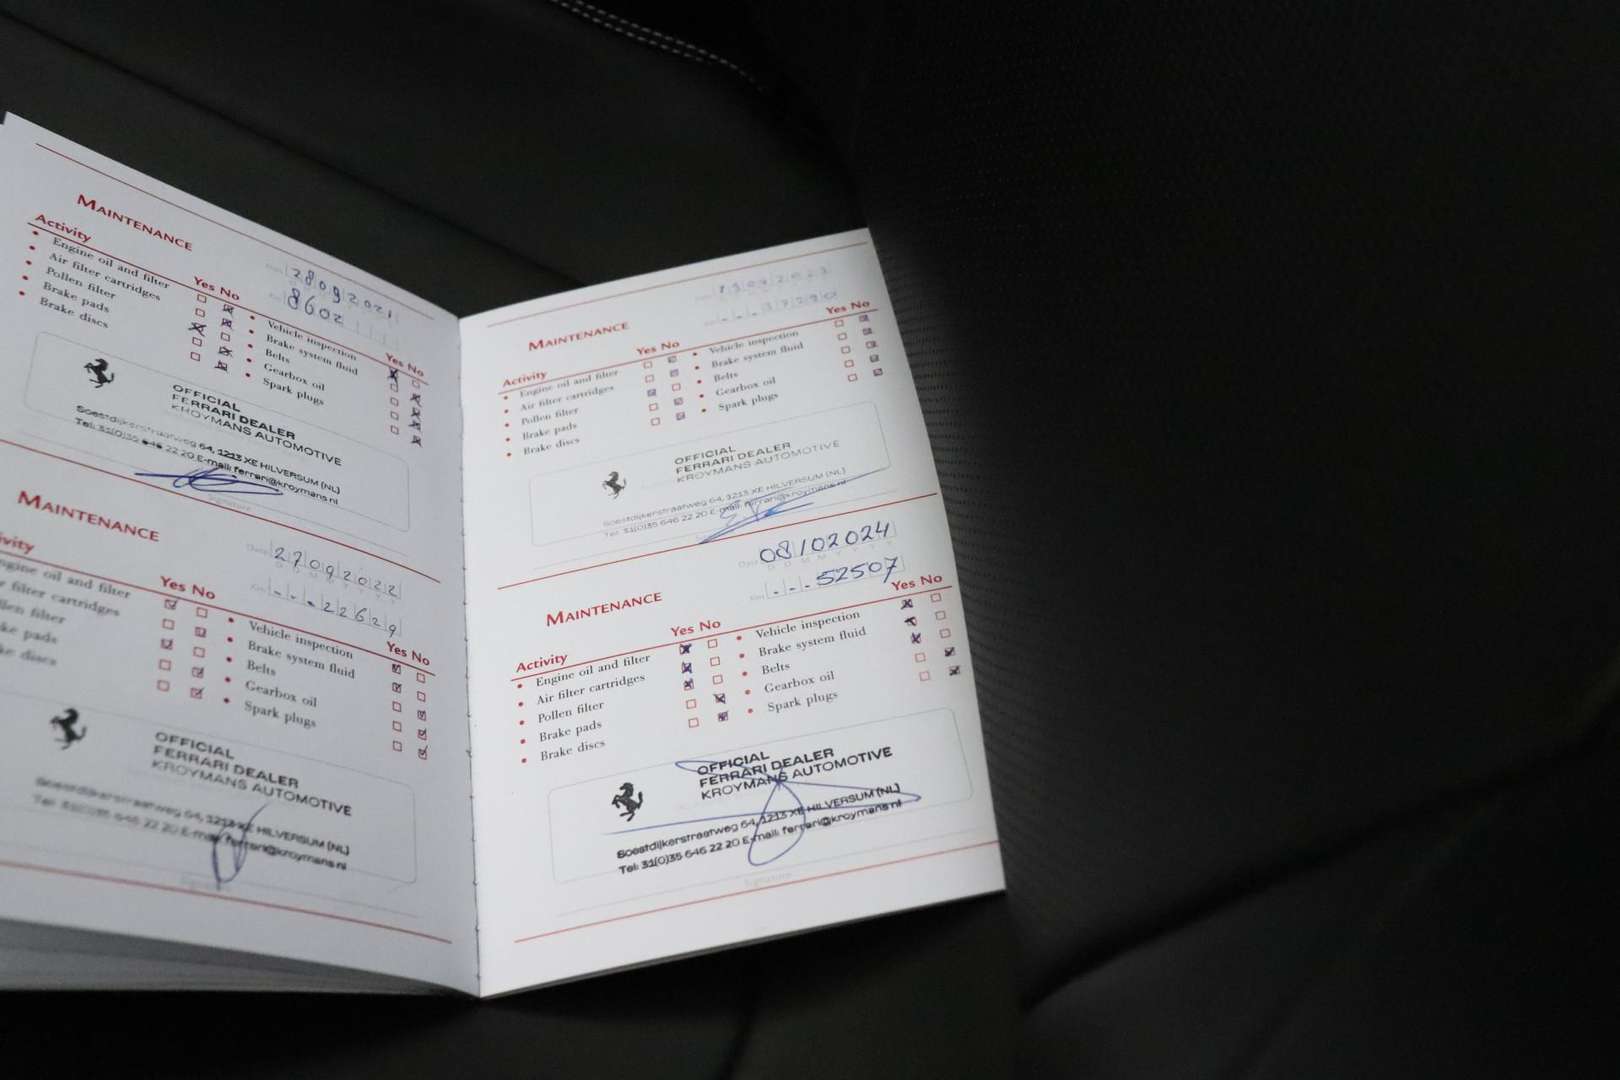 MAINTENANCE
Date 28092021
Km 8602
Activity Yes No Yes No
• Engine oil and filter
• Air filter cartridges
• Pollen filter
• Brake pads
• Brake discs
• Vehicle inspection
• Brake system fluid
• Belts
• Gearbox oil
• Spark plugs
OFFICIAL
FERRARI DEALER
KROYMANS AUTOMOTIVE
Soestdijkerstraatweg 64, 1213 XE HILVERSUM (NL)
Tel: 31(0)35 646 22 20 E-mail: ferrari@kroymans.nl
Signature
MAINTENANCE
Date 27092022
Km - - - 22629
ivity Yes No Yes No
ngine oil and filter
r filter cartridges
llen filter
ke pads
ke discs
• Vehicle inspection
• Brake system fluid
• Belts
• Gearbox oil
• Spark plugs
OFFICIAL
FERRARI DEALER
KROYMANS AUTOMOTIVE
Soestdijkerstraatweg 64, 1213 XE HILVERSUM (NL)
Tel: 31(0)35 646 22 20 E-mail: ferrari@kroymans.nl
MAINTENANCE
Activity Yes No Yes No
• Engine oil and filter
• Air filter cartridges
• Pollen filter
• Brake pads
• Brake discs
• Vehicle inspection
• Brake system fluid
• Belts
• Gearbox oil
• Spark plugs
OFFICIAL
FERRARI DEALER
KROYMANS AUTOMOTIVE
Soestdijkerstraatweg 64, 1213 XE HILVERSUM (NL)
Tel: 31(0)35 646 22 20 E-mail: ferrari@kroymans.nl
MAINTENANCE
Date 08/02024
Km - - - 52507
Activity Yes No Yes No
• Engine oil and filter
• Air filter cartridges
• Pollen filter
• Brake pads
• Brake discs
• Vehicle inspection
• Brake system fluid
• Belts
• Gearbox oil
• Spark plugs
OFFICIAL
FERRARI DEALER
KROYMANS AUTOMOTIVE
Soestdijkerstraatweg 64, 1213 XE HILVERSUM (NL)
Tel: 31(0)35 646 22 20 E-mail: ferrari@kroymans.nl
Signature